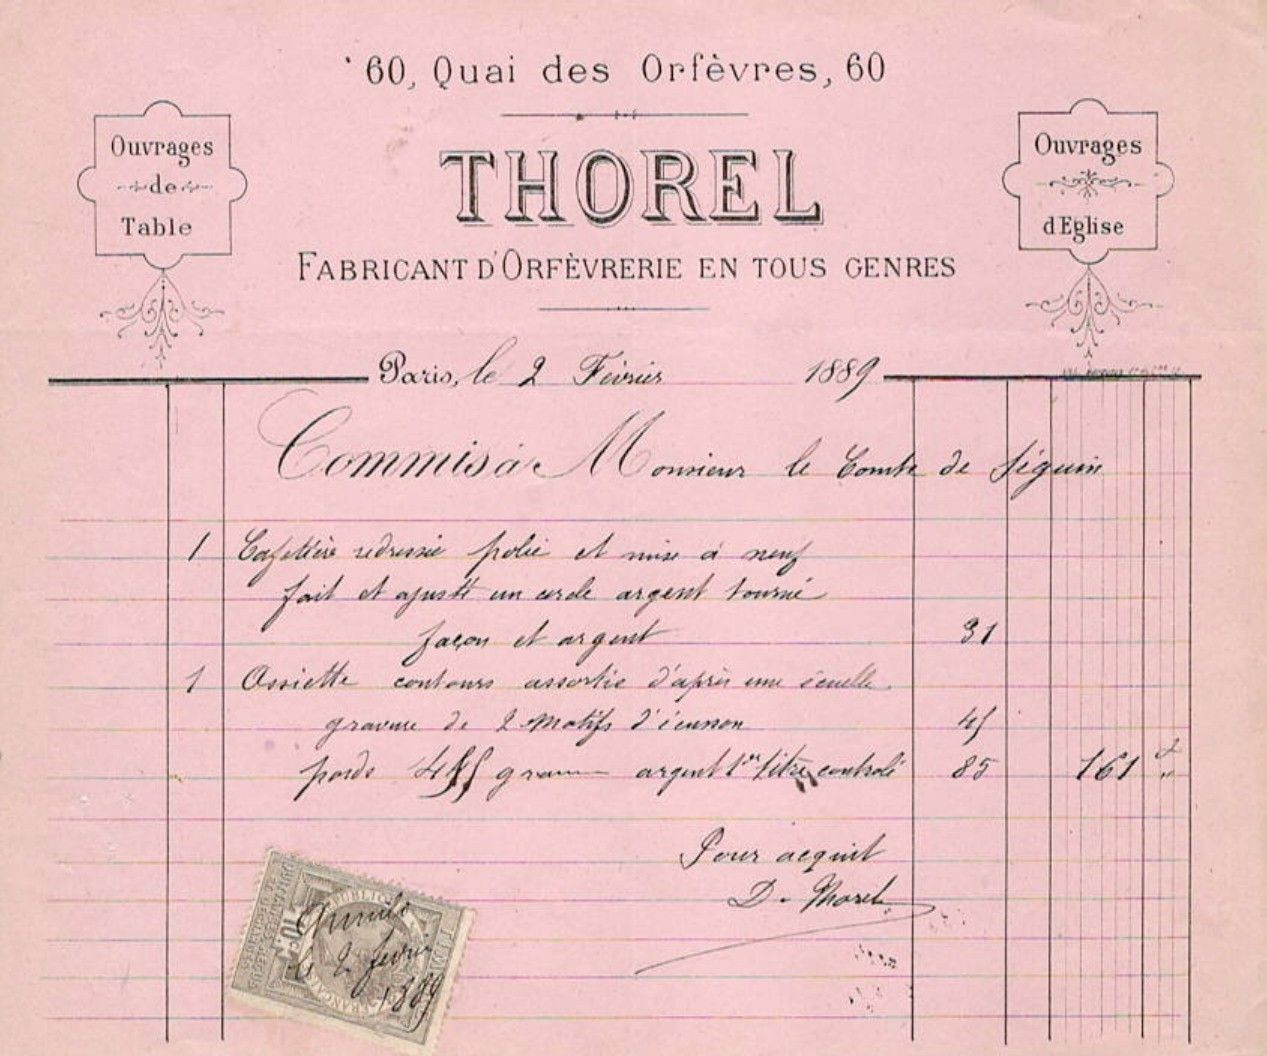 60, Quai des Orfèvres, 60
Ouvrages
de
Table
THOREL
Ouvrages
d'Eglise
FABRICANT D'ORFÈVRERIE EN TOUS GENRES
Paris, le 2 Février 1889
Commis à Monsieur le Comte de Séguin
1 Cafetière redressée polie et mise à neuf
fait et ajusté un cercle argent tourné
façon et argent 31
1 Assiette contours assortie d'après une écuelle
gravure de 2 motifs d'écusson 45
poids gramm argent 1er titre contrôlé 85 161 f
Pour acquit
D. Thorel
10 c
Annulé
le 2 février
1889